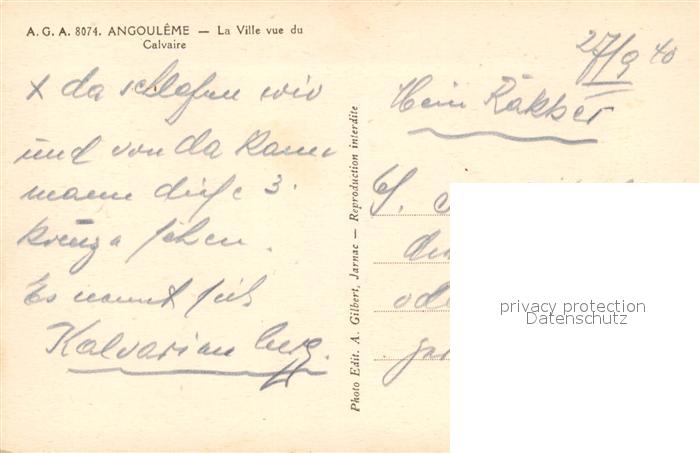 A. G. A. 8074. ANGOULÊME — La Ville vue du
Calvaire
x da schlafen wir
und von da kann
mann diese 3.
kreuza sehen.
Es nennt sich
Kalvarian berg.
Photo Edit. A. Gilbert, Jarnac — Reproduction interdite
27/9 40
Hein Räkker
S.
ode
privacy protection
Datenschutz